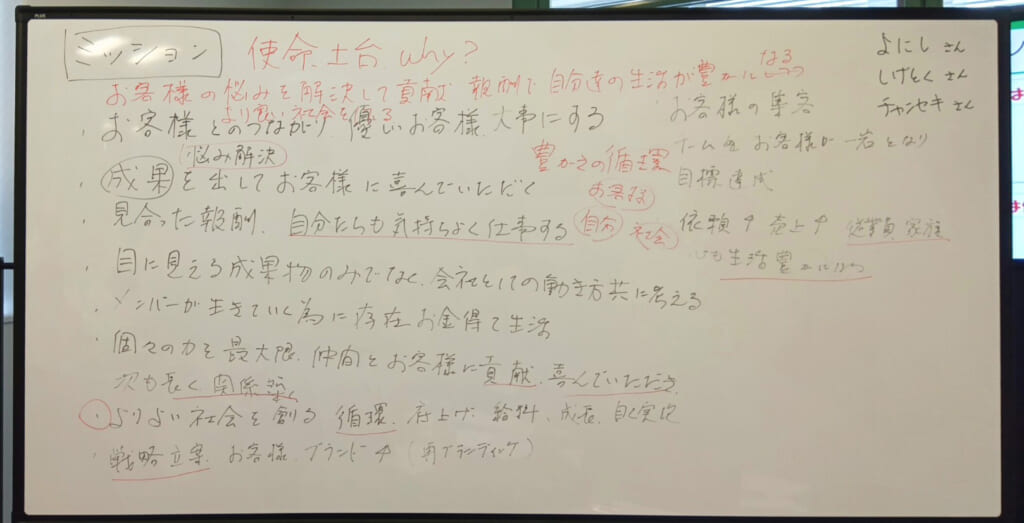 PLUS
ミッション 使命、土台 why?
お客様の悩みを解決して貢献 報酬で自分達の生活が豊かになる
より良い社会を
・お客様とのつながり 優しいお客様、大事にする
悩み解決
・成果を出してお客様に喜んでいただく
・見合った報酬、自分たらも気持ちよく仕事する
・目に見える成果物のみでなく、会社としての働き方共に考える
・メンバーが生きていく為に存在 お金得て生活
・個々の力を最大限、仲間とお客様に貢献、喜んでいただき
次も長く関係築く
・よりよい社会を創る 循環、売上げ、給料、成長、自己実現
・戦略立案、お客様、ブランド↑(再ブランディング)
豊かさの循環
お客様
自分 社会
よにしさん
しげとくさん
チャンセキさん
お客様の集客
お客様が一若となり
目標達成
依頼↑ 売上↑ 従業員 家族
も生活豊かになる